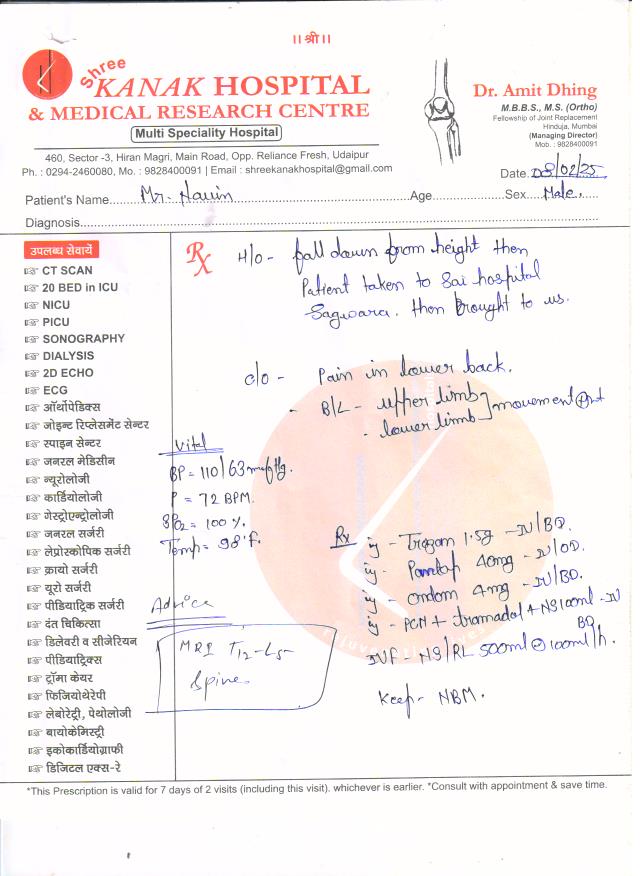 ॥ श्री ॥
Shree
KANAK HOSPITAL
& MEDICAL RESEARCH CENTRE
Multi Speciality Hospital
460, Sector -3, Hiran Magri, Main Road, Opp. Reliance Fresh, Udaipur
Ph. : 0294-2460080, Mo. : 9828400091 | Email : shreekanakhospital@gmail.com
Dr. Amit Dhing
M.B.B.S., M.S. (Ortho)
Fellowship of Joint Replacement
Hinduja, Mumbai
(Managing Director)
Mob. : 9828400091
Date. 08/02/25
Patient's Name Mr. Navin Age Sex Male.
Diagnosis
उपलब्ध सेवायें
CT SCAN
20 BED in ICU
NICU
PICU
SONOGRAPHY
DIALYSIS
2D ECHO
ECG
ऑर्थोपेडिक्स
जोइन्ट रिप्लेसमेंट सेन्टर
स्पाइन सेन्टर
जनरल मेडिसीन
न्यूरोलॉजी
कार्डियोलॉजी
गेस्ट्रोएन्ट्रोलॉजी
जनरल सर्जरी
लेप्रोस्कोपिक सर्जरी
क्रायो सर्जरी
यूरो सर्जरी
पीडियाट्रिक सर्जरी
दंत चिकित्सा
डिलेवरी व सीजेरियन
पीडियाट्रिक्स
ट्रॉमा केयर
फिजियोथेरेपी
लेबोरेट्री, पेथोलोजी
बायोकेमिस्ट्री
इकोकार्डियोग्राफी
डिजिटल एक्स-रे
Rx
H/O - fall down from height then
Patient taken to Sai hospital
Sagwara. then brought to us.
c/o - Pain in lower back.
- B/L - upper limb movement ⊕nt
- lower limb
Vital
BP = 110/63 mmHg.
P = 72 BPM.
SPO2 = 100 %.
Temp = 98°F.
Advice
MRI T12-L5
Spine
Rx
inj - Trazam 1.5g - IV/BD.
inj - Pantop 40mg - IV/OD.
inj - ondom 4mg - IV/BD.
inj - PCM + tramadol + NS 100ml - IV
BD.
IVF = NS/RL 500ml @ 100ml/h.
Keep - NBM.
*This Prescription is valid for 7 days of 2 visits (including this visit). whichever is earlier. *Consult with appointment & save time.